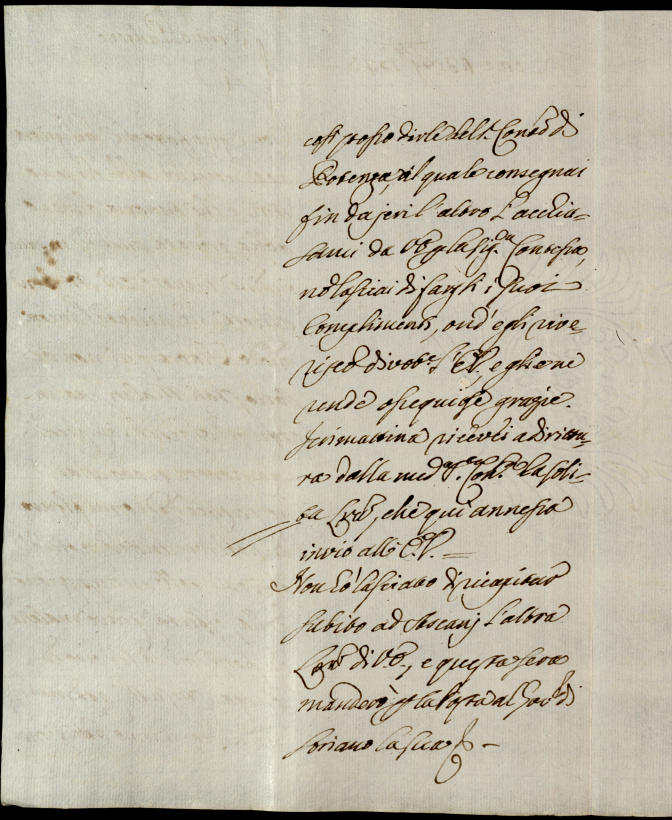 cosi posso dirle del S. Conte di
Potenza, al quale consegnai
fin da jeri l'altro l'acclu-
samI da VE p la Sig.ra Contessa,
nō lasciai di fargli i Suoi
Complimenti, ond' egli rive-
risce divot.e l' E.V., e gliene
rende ossequiose grazie.
Jerimattina ricevei a dirittu-
ra dalla med.a S.ra Con.a la soli-
ta Lrā, che qui annessa
invio all' E.V. =
Non hò lasciato di ricapitar
subito ad Ascanj l'altra
Lrā di VE., e questa sera
manderò p la Posta al Gov.re di
Soriano la sua